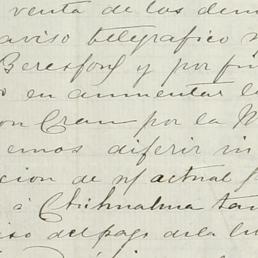 venta de las dem
aviso telegrafico
Beresford y por fin
en aumentar la
on Cram por la M
emos diferir in
cion de n/ actual
á Chihuahua tan
iso del pago de la